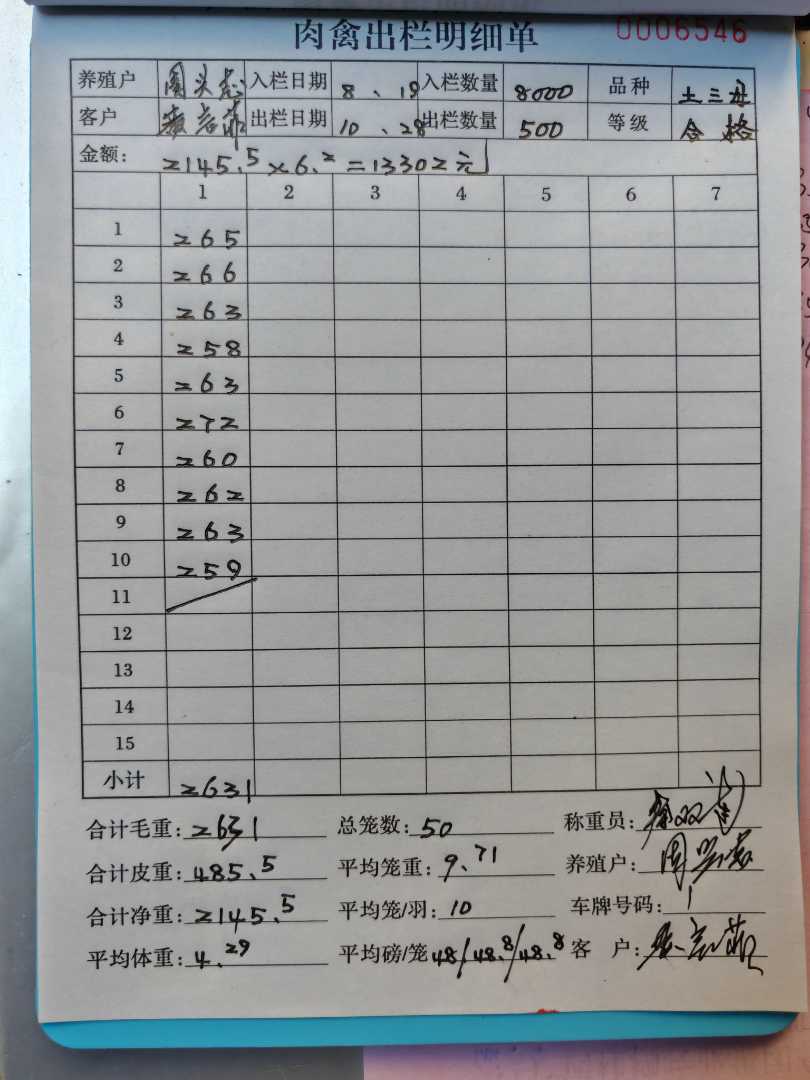 肉禽出栏明细单 0006546
养殖户 周 入栏日期 8、19 入栏数量 8000 品种 土三母
客户 出栏日期 10、28 出栏数量 500 等级 合格
金额: 2145.5×6.2=13302元
1 2 3 4 5 6 7
1 265
2 266
3 263
4 258
5 263
6 272
7 260
8 262
9 263
10 259
11
12
13
14
15
小计 2631
合计毛重: 2631 总笼数: 50 称重员:
合计皮重: 485.5 平均笼重: 9.71 养殖户: 周
合计净重: 2145.5 平均笼/羽: 10 车牌号码:
平均体重: 4.29 平均磅/笼 48/48.8/48.8 客 户: